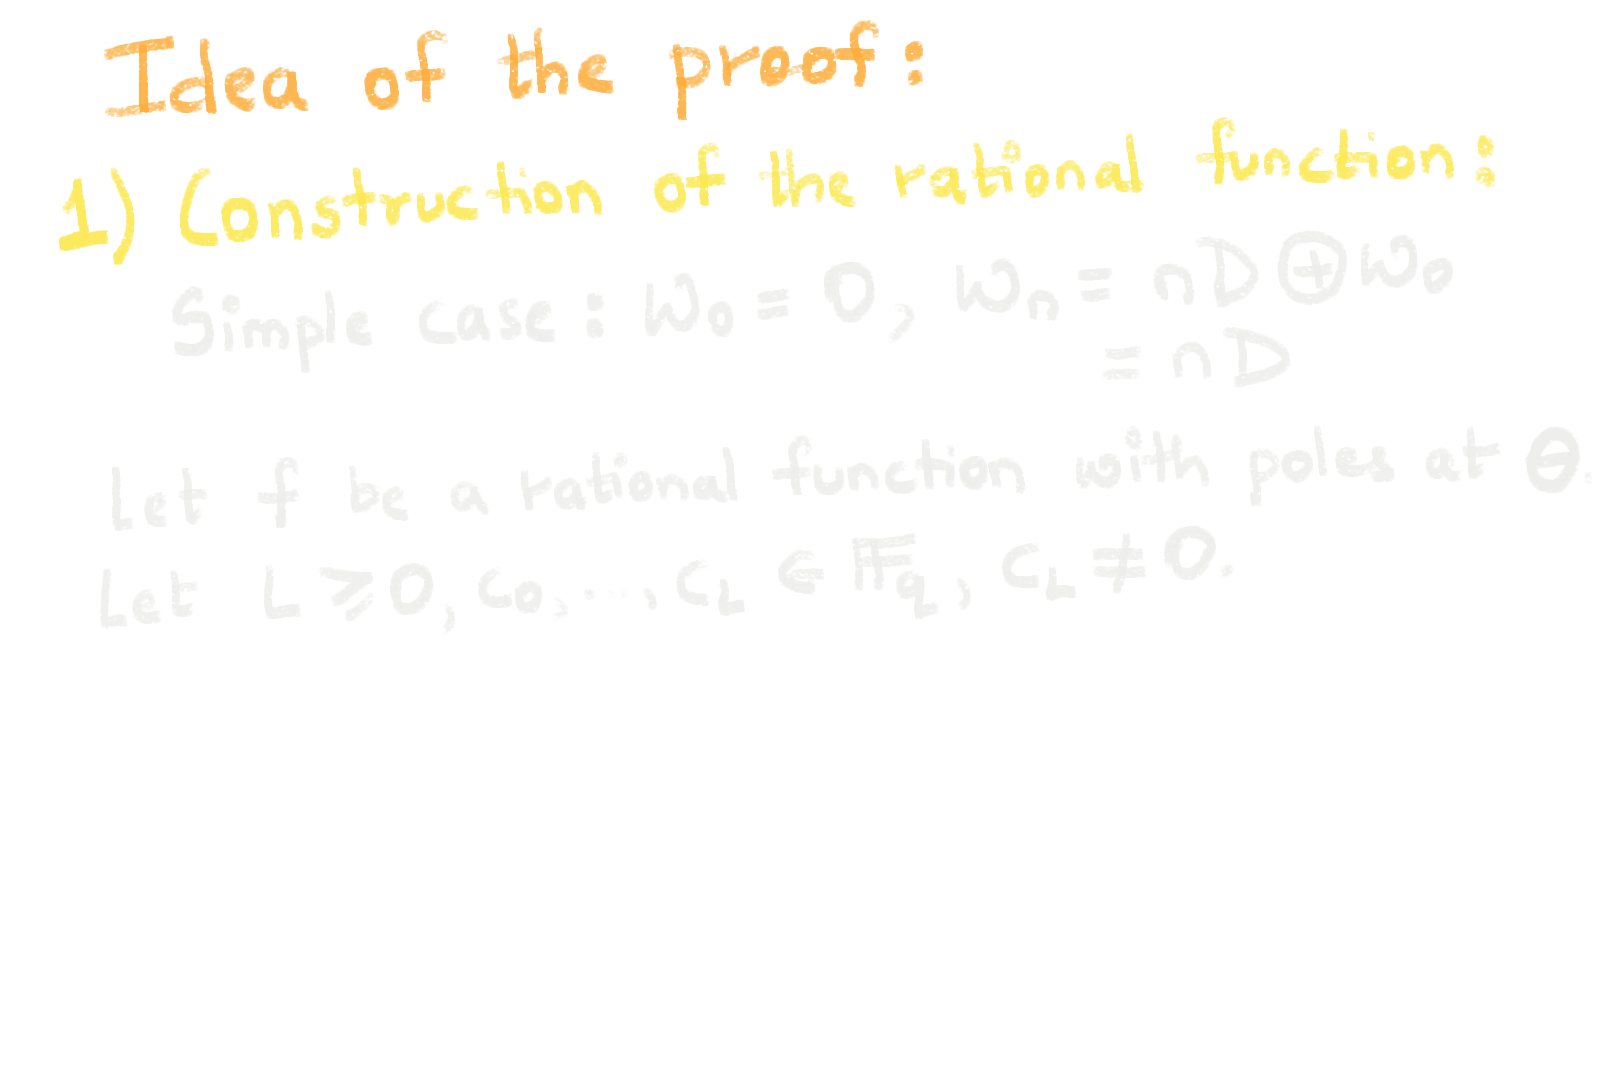 Idea of the proof:
1) Construction of the rational function:
Simple case: W₀ = O, Wₙ = nD ⊕ W₀
= nD
Let f be a rational function with poles at Θ.
Let L ⩾ 0, c₀, ..., c_L ∈ 𝔽_q, c_L ≠ 0.